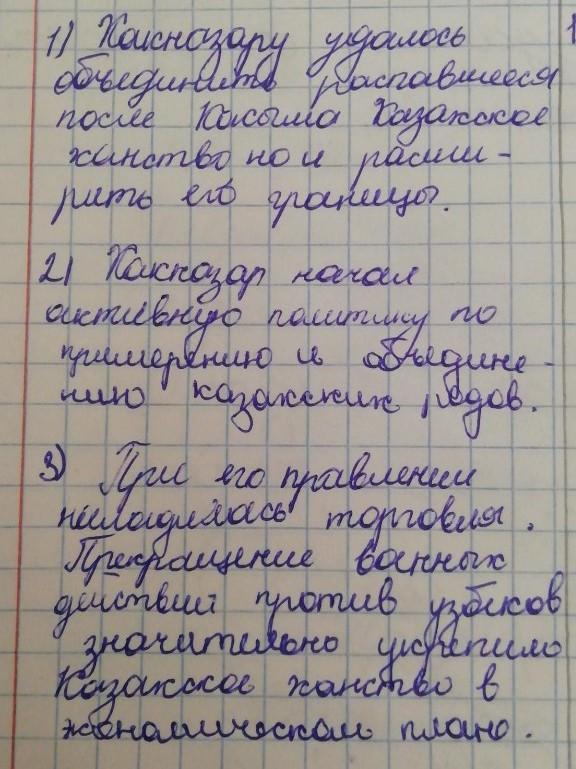 1) Хакназару удалось
объединить распавшееся
после Касыма Казахское
ханство но и расши-
рить его границы.
2) Хакназар начал
активную политику по
примерению и объедине-
нию казахских родов.
3) При его правлении
наладилась торговля.
Прекращение военных
действий против узбеков
значительно укрепило
Казахское ханство в
экономическом плане.
1